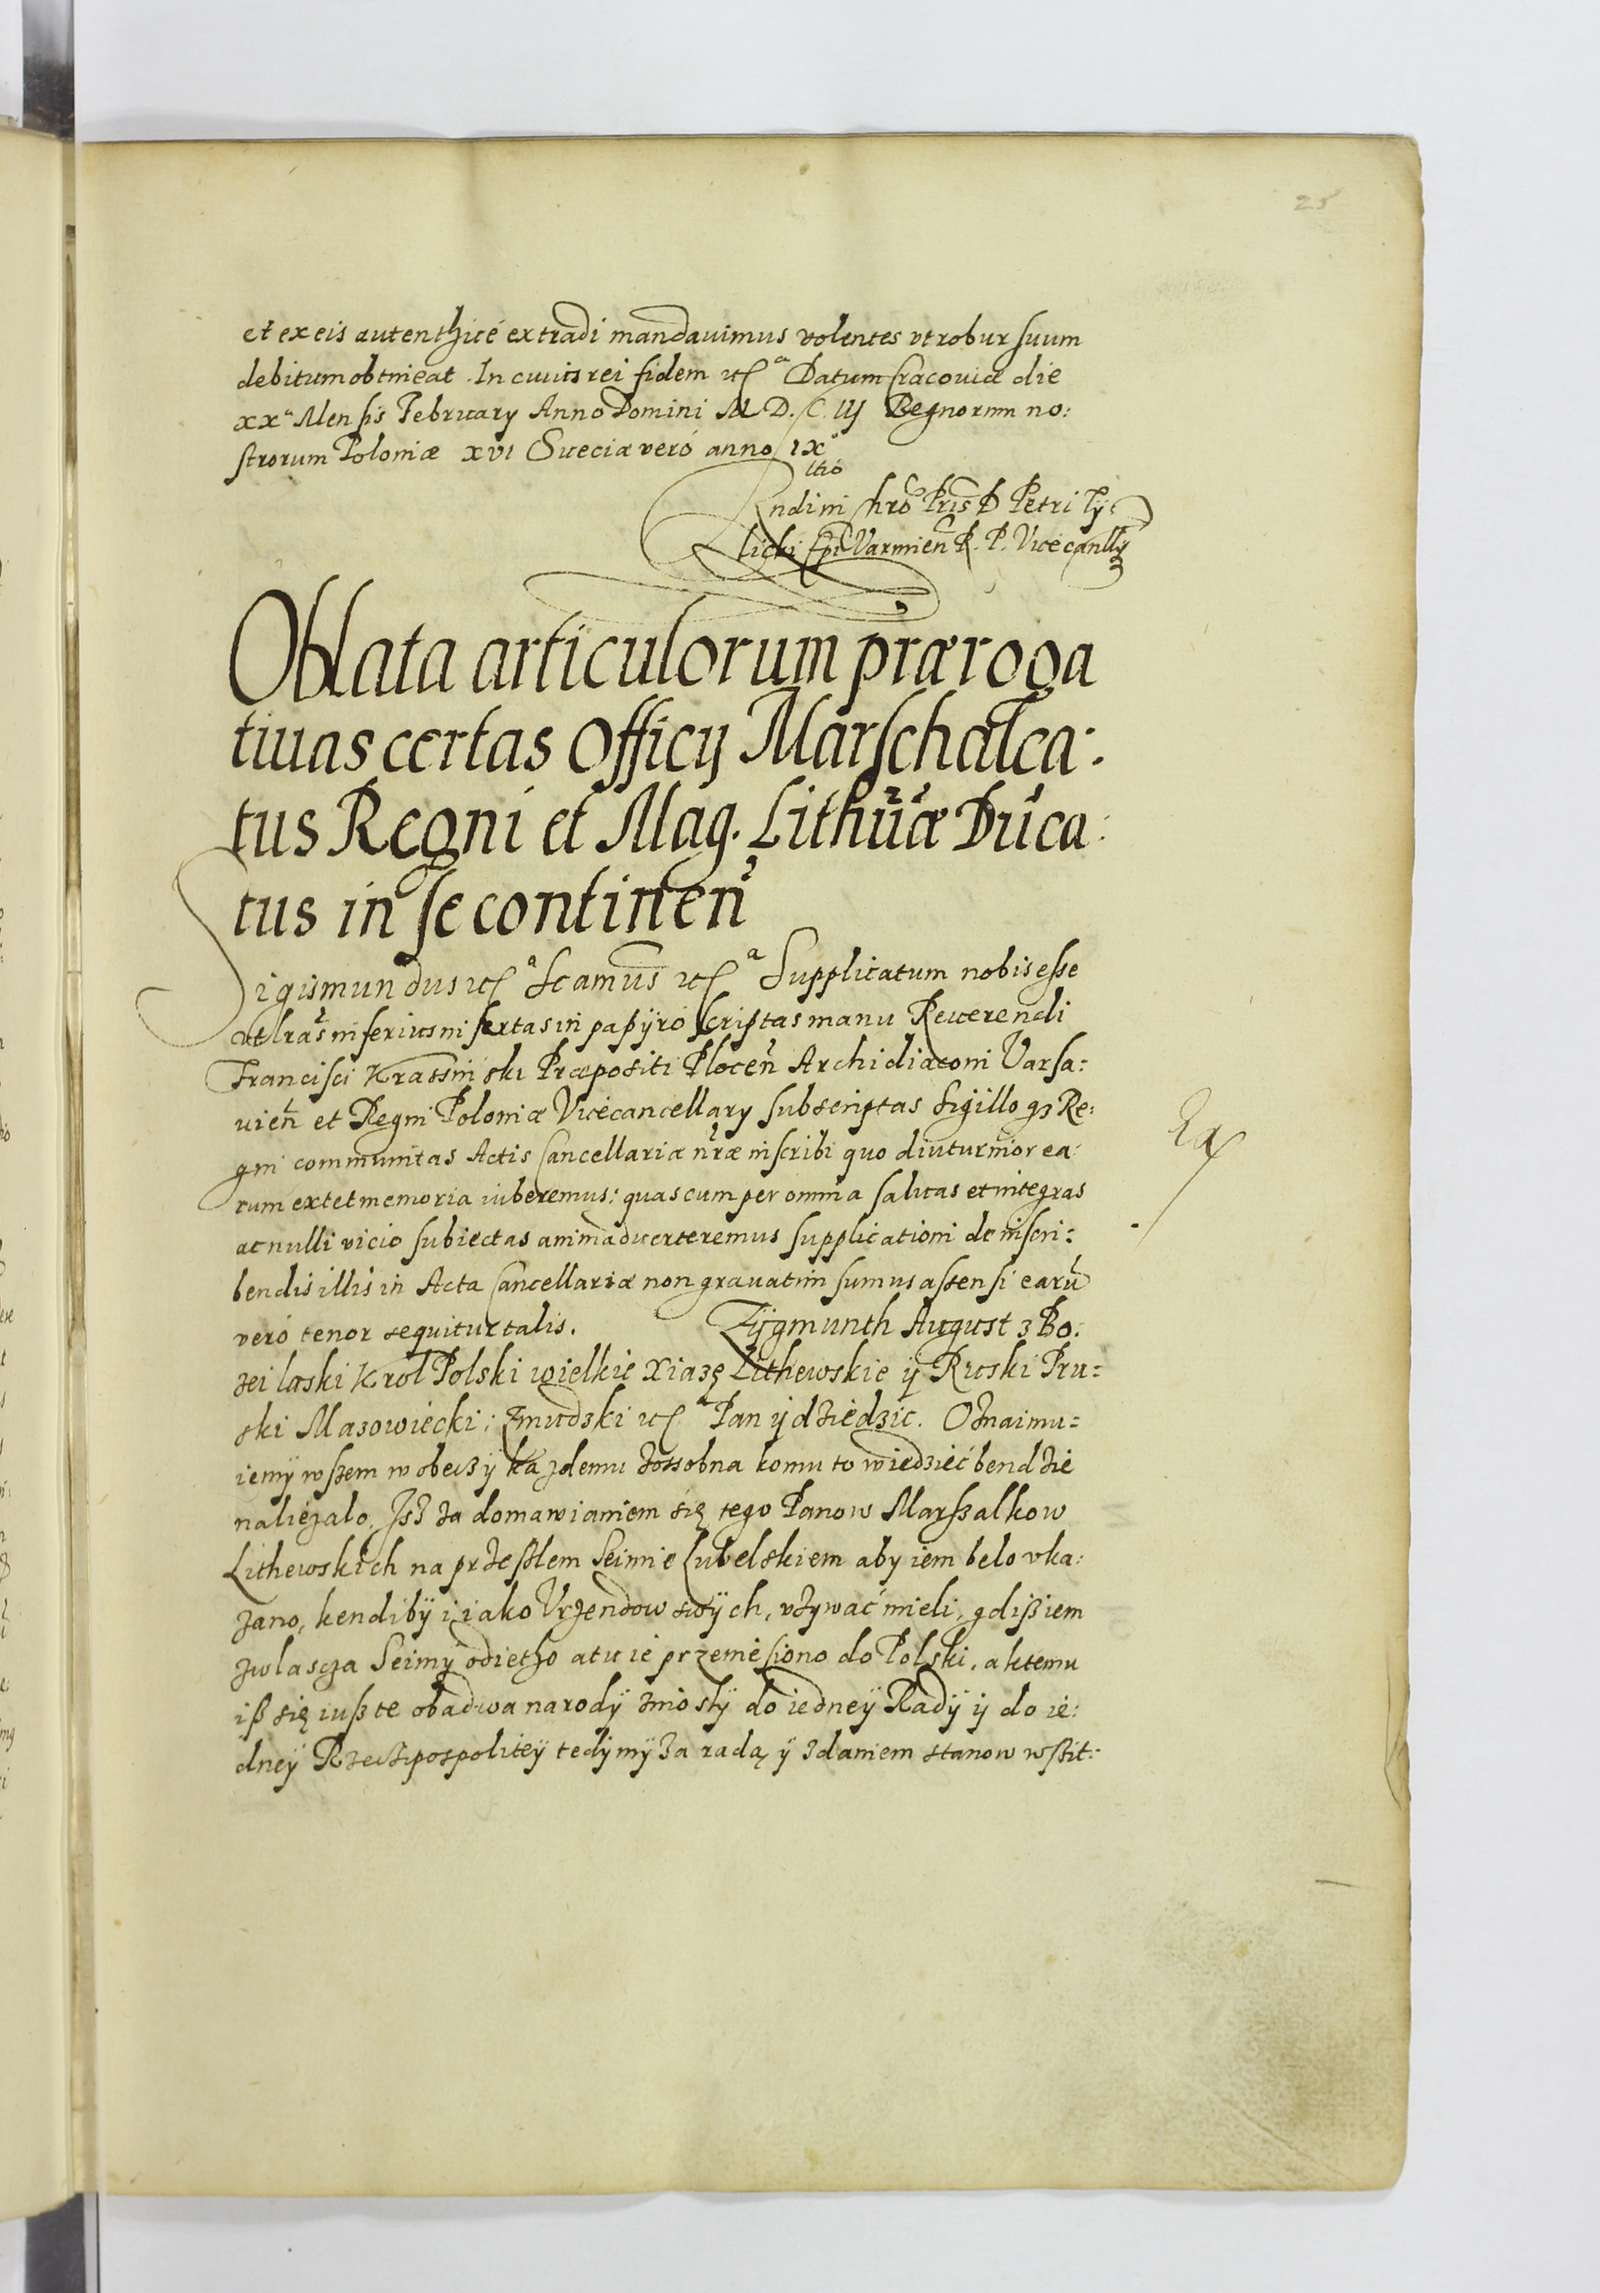 25
et ex eis autenthicé extradi mandauimus volentes vt robur suum
debitum obtineat. In cuius rei fidem etc. Datum Cracouiæ die
xxa Mensis February Anno Domini M. D. C. IIJ Regnorum no:
strorum Poloniæ xvi Sueciæ veró anno IXo
Rndi in Chro Pris D Petri Ty:
licki Epi Varmien R. P. Vicecanlly
Oblata articulorum præroga
tiuas certas Officij Marschalca:
tus Regni et Mag. Lithuæ Duca:
tus in se continen
Sigismundus etc. Scamus etc. Supplicatum nobis esse
ut lras inferius insertas in papÿro scriptas manu Reuerendi
Francisci Krassinski Præpositi Plocen Archidiaconi Varsa:
uien et Regni Poloniæ Vicecancellary subscriptas sigillo qȝ Re:
gni communitas Actis Cancellariæ nræ inscribi quo diuturnior ea:
rum extet memoria iuberemus: quas cum per omnia saluas et integras
ac nulli vicio subiectas animaduerteremus supplicationi de inscri:
bendis illis in Acta Cancellariæ non grauatim sumus assensi earu
veró tenor sequitur talis. Zÿgmunth August z Bo:
zei laski Krol Polski wielkie Xiazę Lithewskie ÿ Ruski Pru=
ski Mazowiecki, Zmudzki etc. Pan ÿ dziedzic. Oznaimu=
iemÿ wszem w obecz ÿ kazdemu zossobna komu to wiedzieć bendzie
naliezalo. Isz za domawianiem się tego Panow Marszalkow
Lithewskich na przeszlem Seimie Lubelskiem aby iem belo vka:
zano, kendibÿ i iako Vrzendow swÿch, vzywać mieli, gdiß iem
zwlascza Seimÿ odietho a tu ie przeniesiono do Polski, a ktemu
iß się iuß te obadwa narodÿ zniosly do iednÿ Radÿ ÿ do ie:
dneÿ Rzeczipospoliteÿ tedÿ mÿ za radą ÿ zdaniem stanow wszit: